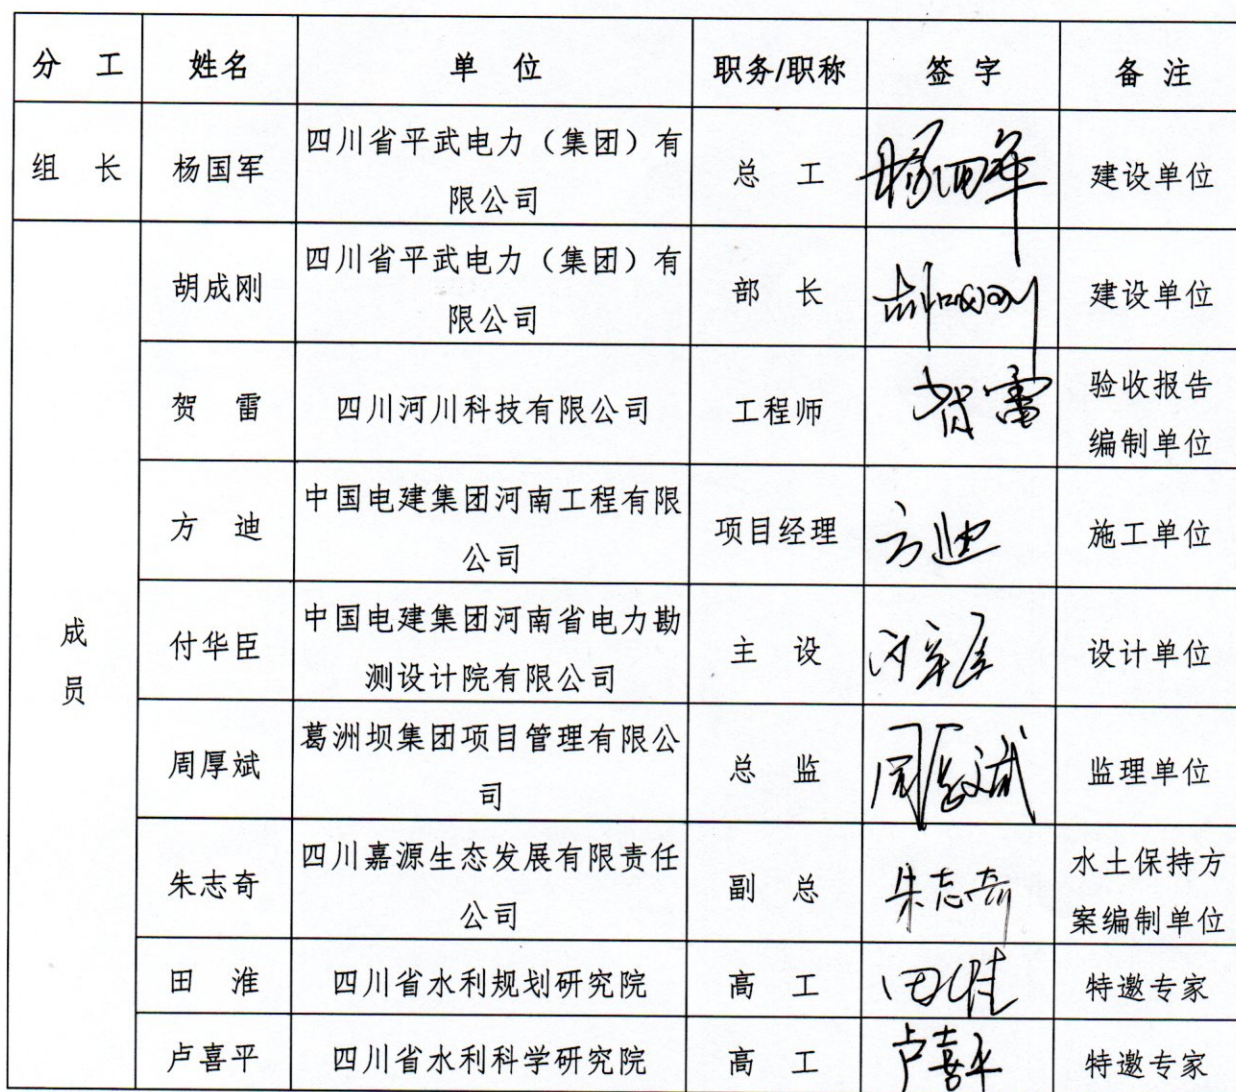 分 工 姓名 单 位 职务/职称 签 字 备 注
组 长 杨国军 四川省平武电力（集团）有
限公司 总 工 杨国军 建设单位
成
员
胡成刚 四川省平武电力（集团）有
限公司 部 长 建设单位
贺 雷 四川河川科技有限公司 工程师 贺雷 验收报告
编制单位
方 迪 中国电建集团河南工程有限
公司 项目经理 方迪 施工单位
付华臣 中国电建集团河南省电力勘
测设计院有限公司 主 设 设计单位
周厚斌 葛洲坝集团项目管理有限公
司 总 监 周厚斌 监理单位
朱志奇 四川嘉源生态发展有限责任
公司 副 总 朱志奇 水土保持方
案编制单位
田 淮 四川省水利规划研究院 高 工 田淮 特邀专家
卢喜平 四川省水利科学研究院 高 工 卢喜平 特邀专家